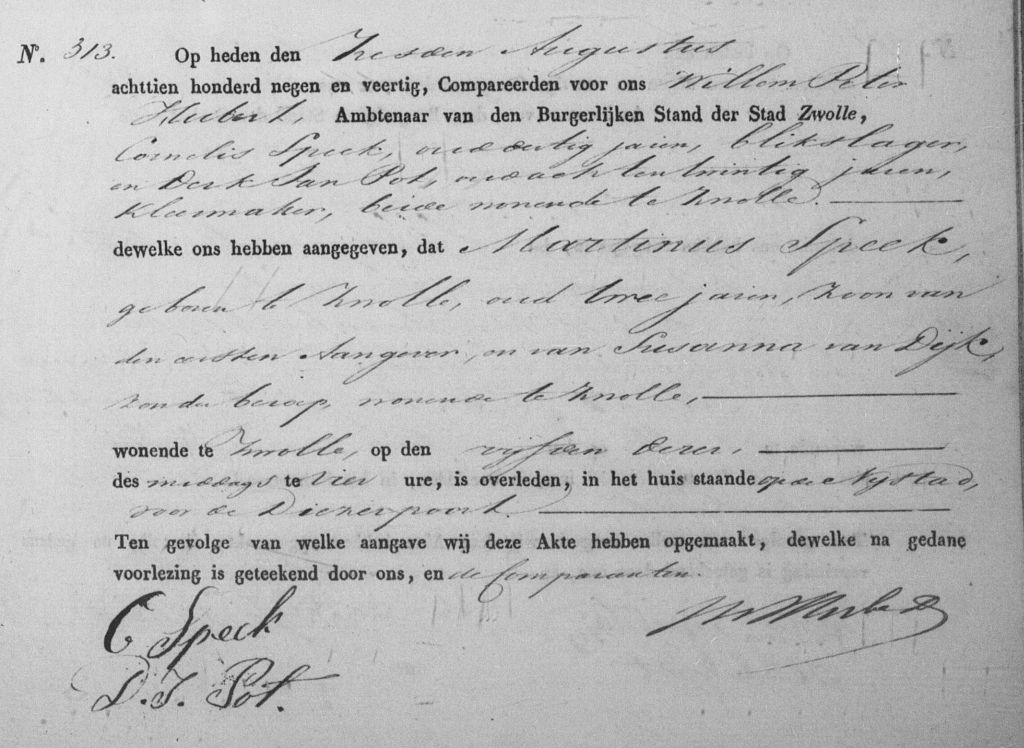 N°. 313. Op heden den Zesden Augustus
achttien honderd negen en veertig, Compareerden voor ons Willem Peter
Hubert, Ambtenaar van den Burgerlijken Stand der Stad Zwolle,
Cornelis Speek, oud dertig jaren, blikslager,
en Derk Jan Pot, oud acht en twintig jaren,
Kleermaker, beide wonende te Zwolle.
dewelke ons hebben aangegeven, dat Martinus Speek,
geboren te Zwolle, oud twee jaren, Zoon van
den eersten Aangever, en van Susanna van Dijk,
zonder beroep, wonende te Zwolle,
wonende te Zwolle, op den vijfden dezer,
des middags te Vier ure, is overleden, in het huis staande op de Nystad,
voor de Diezerpoort.
Ten gevolge van welke aangave wij deze Akte hebben opgemaakt, dewelke na gedane
voorlezing is geteekend door ons, en de Comparanten.
C Speek
D. J. Pot.